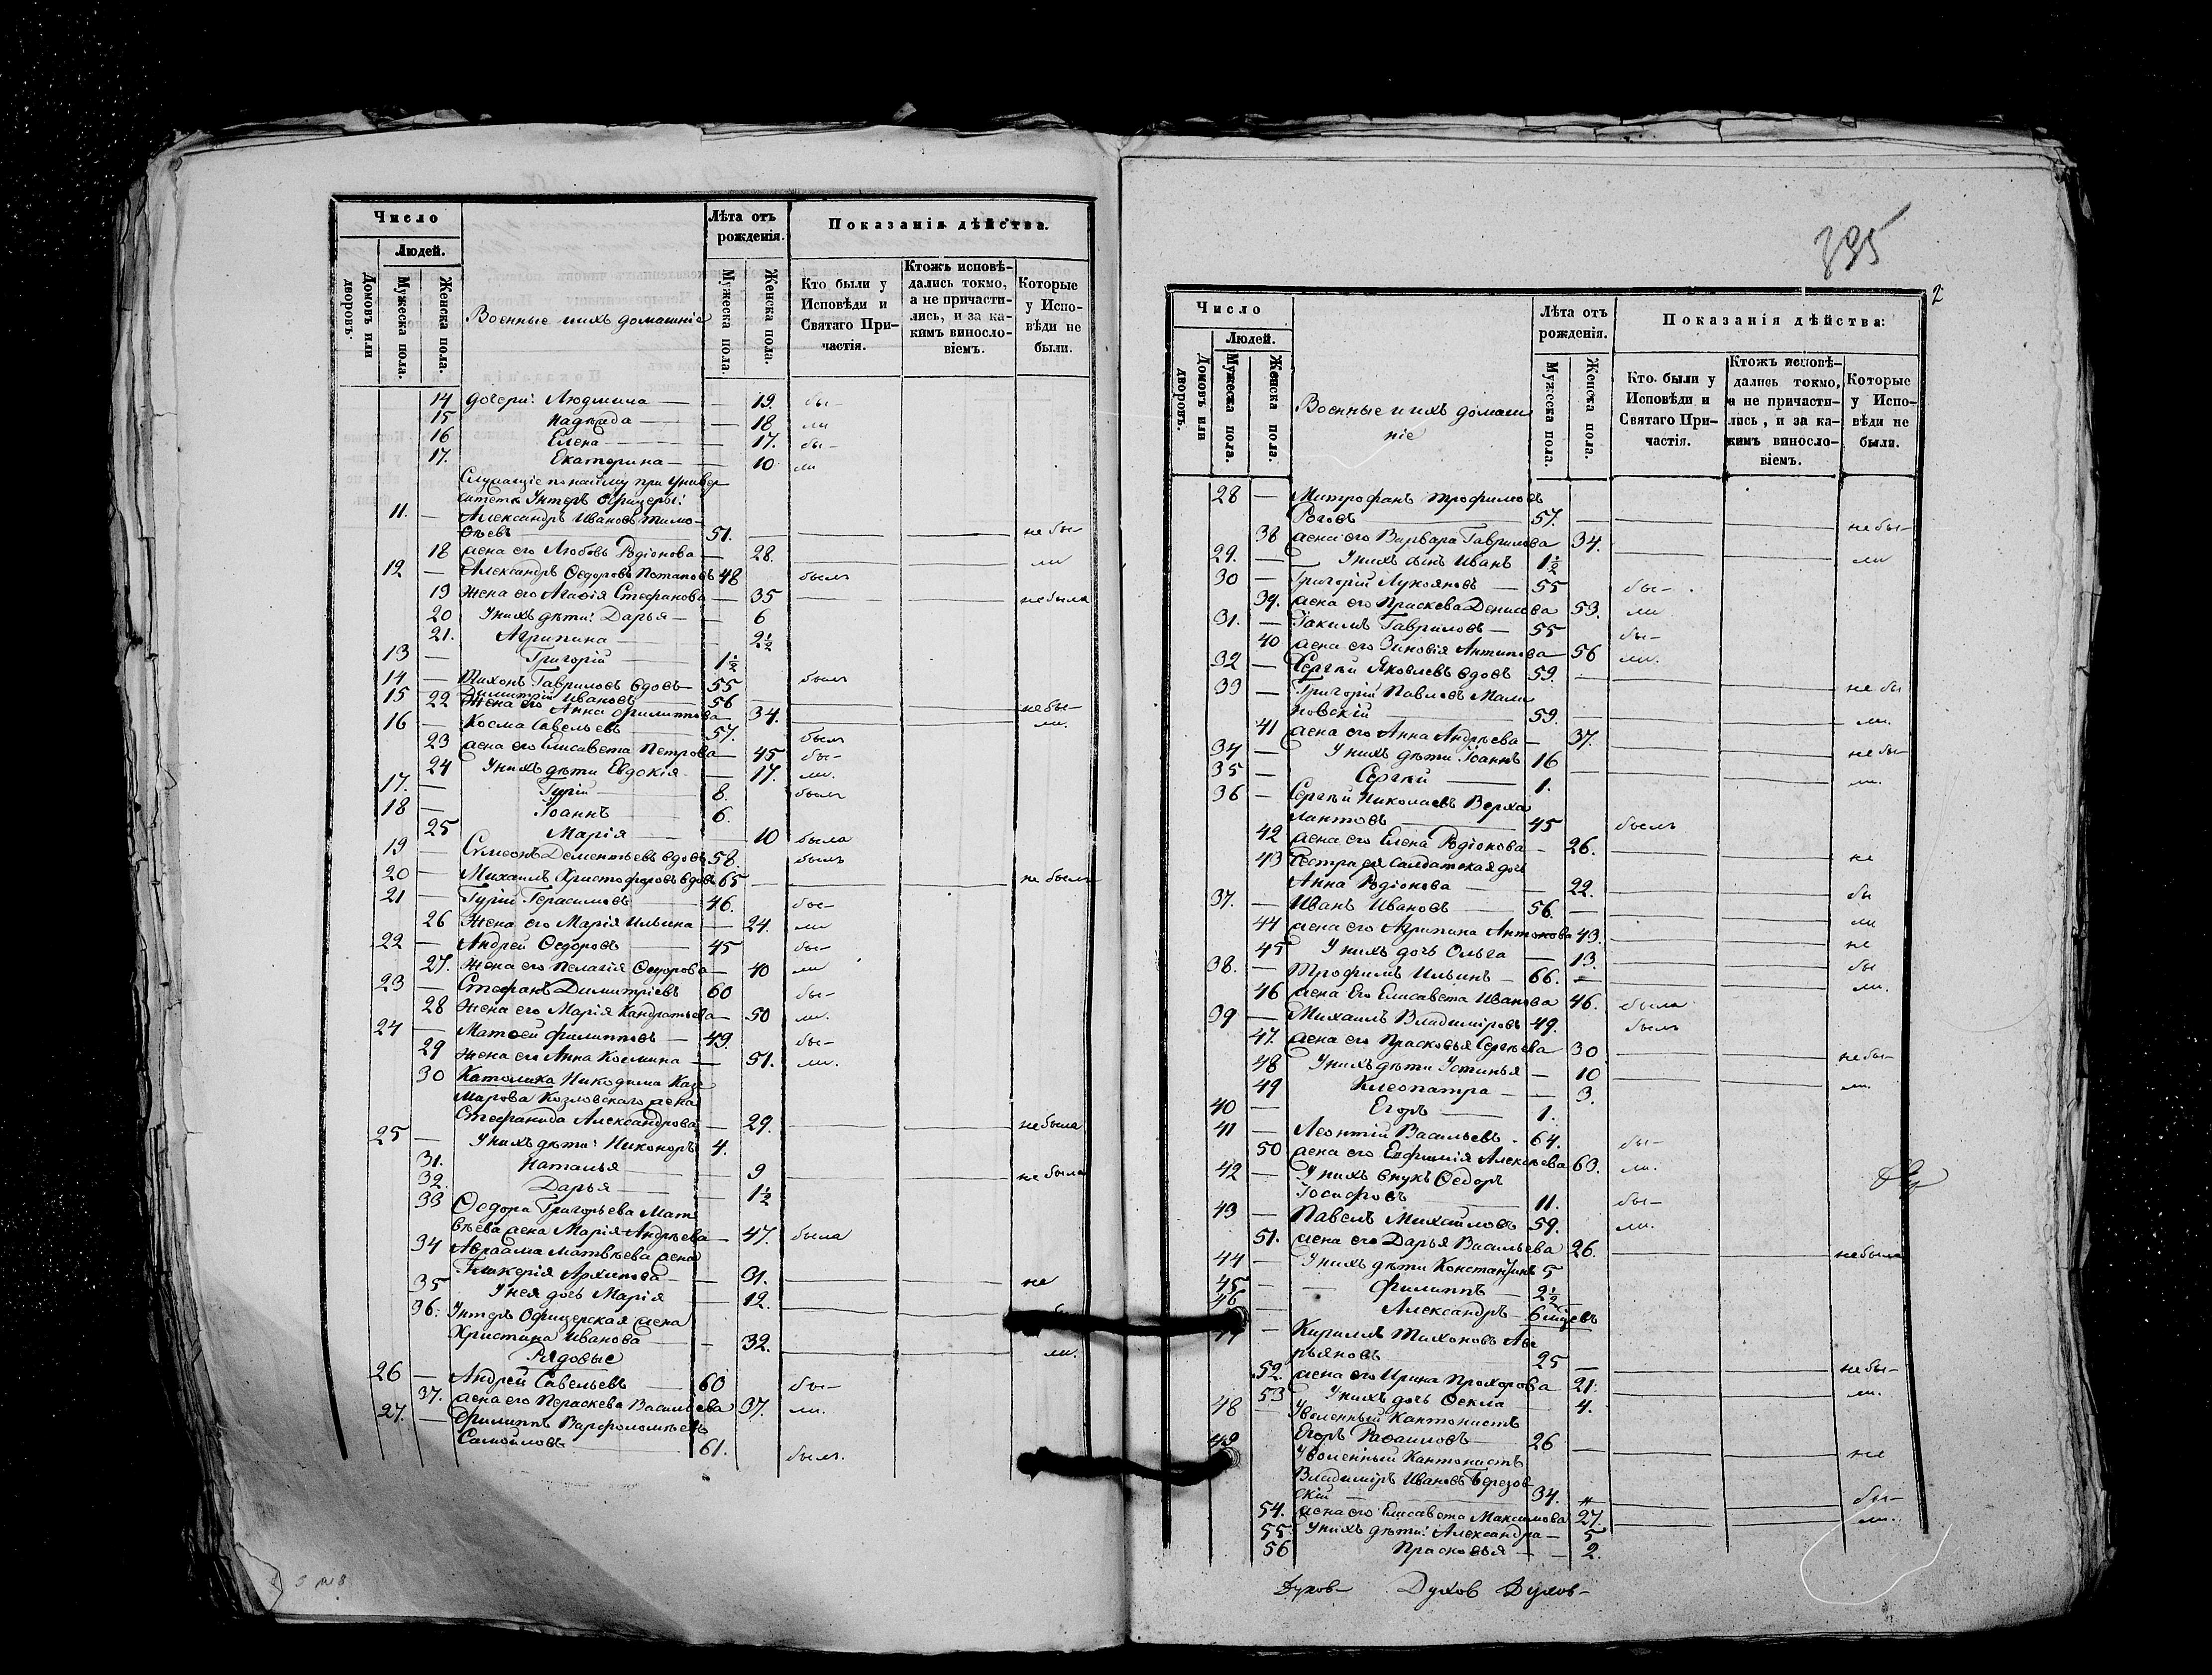 Число
Людей.
Домовъ или дворовъ.
Мужеска пола.
Женска пола.
Военные и ихъ домашніе
Лѣта отъ рожденія.
Мужеска пола.
Женска пола.
Показанія дѣйства.
Кто были у Исповѣди и Святаго Причастія.
Ктожъ исповѣдались токмо, а не причастились, и за какимъ винословіемъ.
Которые у Исповѣди не были.
14 дочери: Людмила — — 19. бы-
15 Надежда — — 18 ли
16 Елена — — 17. бы-
17. Екатерина — — 10 ли
Служащіе по найму при Универ
ситетѣ Унтеръ Офицеры:
11. — Александръ Ивановъ Тимо-
ѳѣевъ — 51. — не бы-
18 жена его Любовь Родіонова — 28. — ли
12 — Александръ Ѳедоровъ Потаповъ 48 былъ
19 Жена его Агафія Стефанова — 35 — не была
20 У нихъ дѣти: Дарья — — 6
21. Агрипина — — 2½
13 — Григорій — 1½
14 — Тихонъ Гавриловъ вдовъ — 55 былъ
15 Димитрій Ивановъ — 56
22 Жена его Анна Филиппова — 34. — не бы-ли.
16 — Косма Савельевъ — 57. былъ
23 жена его Елисавета Петрова — 45 бы-
24 У нихъ дѣти Евдокія — 17. ли.
17. — Гурій — 8. былъ
18 — Іоаннъ — 6.
25 Марія — 10 была
19 — Симеонъ Дементьевъ вдовъ 58. былъ
20 — Михаилъ Христофоровъ вдовъ 65 — не былъ
21 — Гурій Герасимовъ — 46. бы-
26 Жена его Марія Ильина — 24. ли
22 — Андрей Ѳедоровъ — 45 бы-
27. Жена его Пелагія Ѳедорова — 40 ли
23 — Стефанъ Димитріевъ 60 бы-
28 Жена его Марія Кандратьева — 50 ли.
24 — Матѳей Филипповъ — 49. бы-
29 Жена его Анна Космина — 51. ли.
30 Католика Никодима Каз
марова Козловскаго жена
Стефанида Александрова — 29. — не была
25 — У нихъ дѣти: Никоноръ 4.
31. Наталья — 9 — не была
32. Дарья — 1½
33 Ѳедора Григорьева Мат
вѣева жена Марія Андрѣева — 47. была
34 Авраама Матвѣева жена
Гликерія Архипова — 31. — не
35 У нея дочь Марія — 12.
36. Унтеръ Офицерская жена
Христина Иванова — 32. — ли.
Рядовые
26 — Андрей Савельевъ — 60 бы-
37. жена его Параскева Васильева 37. ли.
27. — Филиппъ Варфоломѣевъ
Самойловъ — 61. былъ.
335
2
Число
Людей.
Домовъ или дворовъ.
Мужеска пола.
Женска пола.
Военные и ихъ домаш
ніе
Лѣта отъ рожденія.
Мужеска пола.
Женска пола.
Показанія дѣйства:
Кто были у Исповѣди и Святаго Причастія.
Ктожъ исповѣдались токмо, а не причастились, и за какимъ винословіемъ.
Которые у Исповѣди не были.
28 — Митрофанъ Трофимовъ
Роговъ — 57. — не бы-
38 жена его Варвара Гаврилова 34.
29. — У нихъ сынъ Иванъ 1½ — ли
30 — Григорій Лукояновъ — 55 бы-
39. жена его Праскева Денисова 53. ли
31. — Іакимъ Гавриловъ — 55 бы-
40 жена его Зиновія Антипова — 56 ли.
32 — Сергѣй Яковлевъ вдовъ 59. — не бы
33 — Григорій Павловъ Мали
новскій — 59. — ли.
41 жена его Анна Андрѣева — 37. — не бы-
34 — У нихъ дѣти Іоаннъ 16
35 — Сергѣй — 1. — ли.
36 — Сергѣй Николаевъ Верха
лантовъ — 45 былъ
42 жена его Елена Родіонова — 26. — не
43 Сестра ея салдатская дочь
Анна Родіонова — 22. — бы
37. — Иванъ Ивановъ — 56. — ли
44 жена его Агрипина Антонова 43. — не
45 У нихъ дочь Ольга — 13. — бы
38. — Трофимъ Ильинъ — 66. — ли.
46 жена Его Елисавета Иванова 46. была
39 — Михаилъ Владиміровъ 49. былъ
47. жена его Прасковья Сергѣева 30 — не бы-
48 У нихъ дѣти Устинья — 10
49 Клеопатра — — 3. ли.
40 — Егоръ — 1.
41 — Леонтій Васильевъ - 64. бы-
50 жена его Евфимія Алексѣева 63. ли.
42 — У нихъ внукъ Ѳедоръ
Іосифовъ — 11. бы-
43 — Павелъ Михайловъ 59. ли.
51. жена его Дарья Васильева 26. — не была
44 — У нихъ дѣти Константинъ 5
45 — Филиппъ — 2½
46 — Александръ — 6 мѣцевъ
47 — Кирилъ Тихоновъ Аве
рьяновъ — 25 — не бы-
52. жена его Ирина Прохорова 21. — ли.
53 У нихъ дочь Ѳекла — 4.
48 — Уволенный Кантонистъ
Егоръ Рафаиловъ — 26 — не
49 Уволенный Кантонистъ
Владиміръ Ивановъ Березов
скій — 34. — бы-
54. жена его Елисавета Максимова 27. — ли.
55 У нихъ дѣти: Александра — 5
56 Прасковья — — 2.
Духов- Духов Духов-